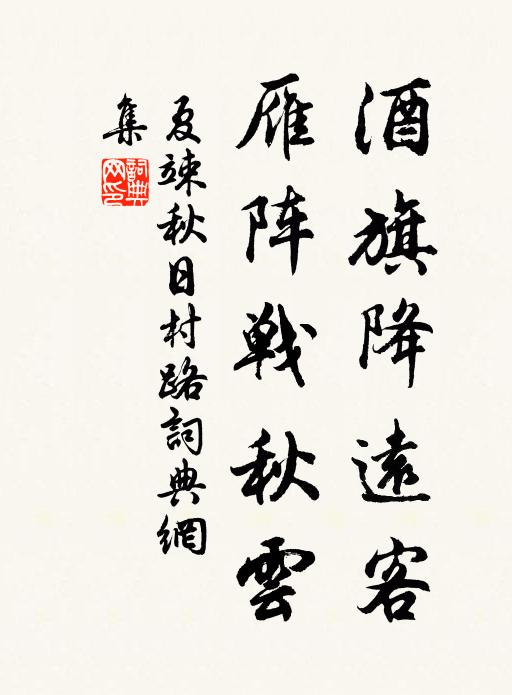 酒旗降遠客
雁阵戰秋雲
夏竦秋日村路詞典網
集
詞典网印